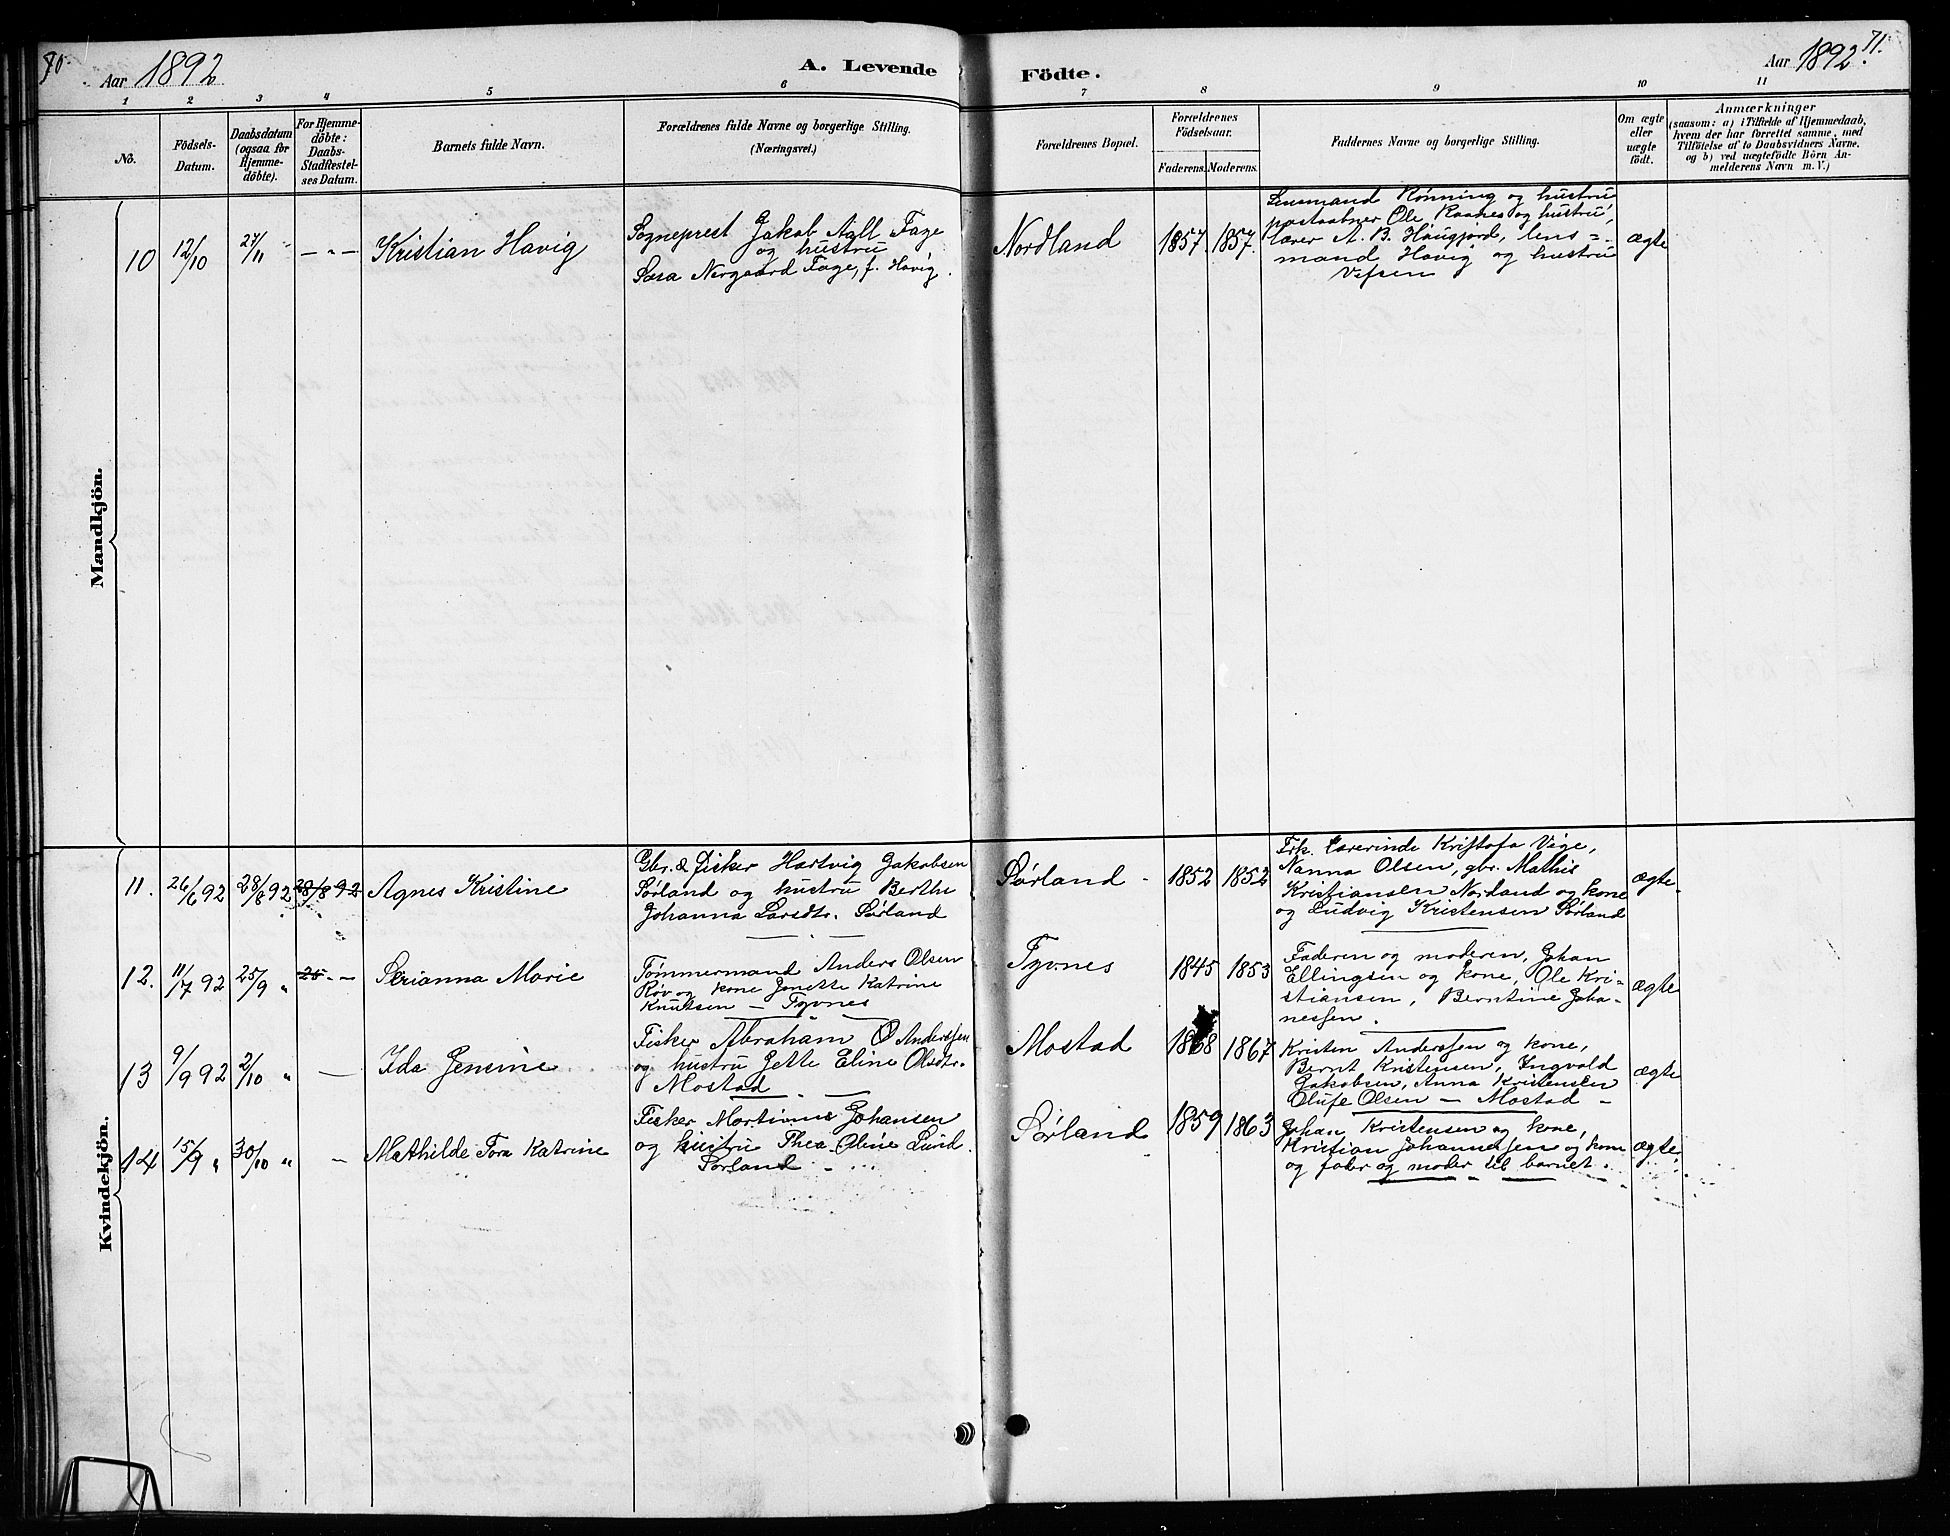 70.
Aar 1892
A. Levende
Födte.
Aar 1892.
71.
1
2
3
4
5
6
7
8
9
10
11
No.
Födsels-
Datum.
Daabsdatum
(ogsaa for
Hjemme-
döbte).
For Hjemme-
döbte:
Daabs-
Stadfæstel-
ses Datum.
Barnets fulde Navn.
Forældrenes fulde Navne og borgerlige Stilling.
(Næringsvei.)
Forældrenes Bopæl.
Forældrenes
Födselsaar.
Faderens.
Moderens.
Faddernes Navne og borgerlige Stilling.
Om ægte
eller
uægte
födt.
Anmærkninger
(saasom: a) i Tilfælde af Hjemmedaab,
hvem der har forrettet samme, med
Tilföielse af to Daabsvidners Navne,
og b) ved uægtefödte Börn An-
melderens Navn m. V.)
Mandkjön.
10
12/10
27/11
— „ —
Kristian Havig
Sogneprest Jakob Fage
og hustru
Sara Nergaard Fage, f. Havig.
Nordland
1857.
1857.
Lensmand Rønning og hustru
postaabner Ole Kaanes og hustru,
lærer A. B. Haugjord, lens=
mand Havig og hustru
Vefsen
ægte
Kvindekjön.
11.
26/6 92
28/8 92
28/8 92
Agnes Kristine
Gbr. & fisker Hartvig Jakobsen
Sørland og hustru Berthe
Johanna Larsdtr. Sørland
Sørland
1852
1852
Frk. Lærerinde Kristofa Vige,
Nanna Olsen, gbr. Mathis
Kristiansen Norland og kone
og Ludvig Kristensen Sørland
ægte
12.
11/7 92
25/9 „
25 - —
Serianna Marie
Tømmermand Anders Olsen
Røv og kone Jenette Katrine
Knutsen — Tyvnes
Tyvnes
1845
1853
Faderen og moderen, Johan
Ellingsen og kone, Ole Kri-
stiansen, Berntine Joha-
nessen.
ægte
13
9/9 92
2/10 „
—
Ida Jensine
Fisker Abraham O Anderssen
og hustru Jette Eline Olsdtr.
Mostad
Mostad
1868
1867
Kristen Anderssen og kone,
Bernt Kristensen, Ingvald
Jakobsen, Anna Kristensen
Olufe Olsen — Mostad -
ægte
14
15/9 „
30/10 „
—
Mathilde Tora Katrine
Fisker Martinus Johansen
og hustru Thea Oline Lund.
Sørland
Sørland
1859
1863
Johan Kristensen og kone,
Kristian Johannessen og kone
og fader og moder til barnet.
ægte